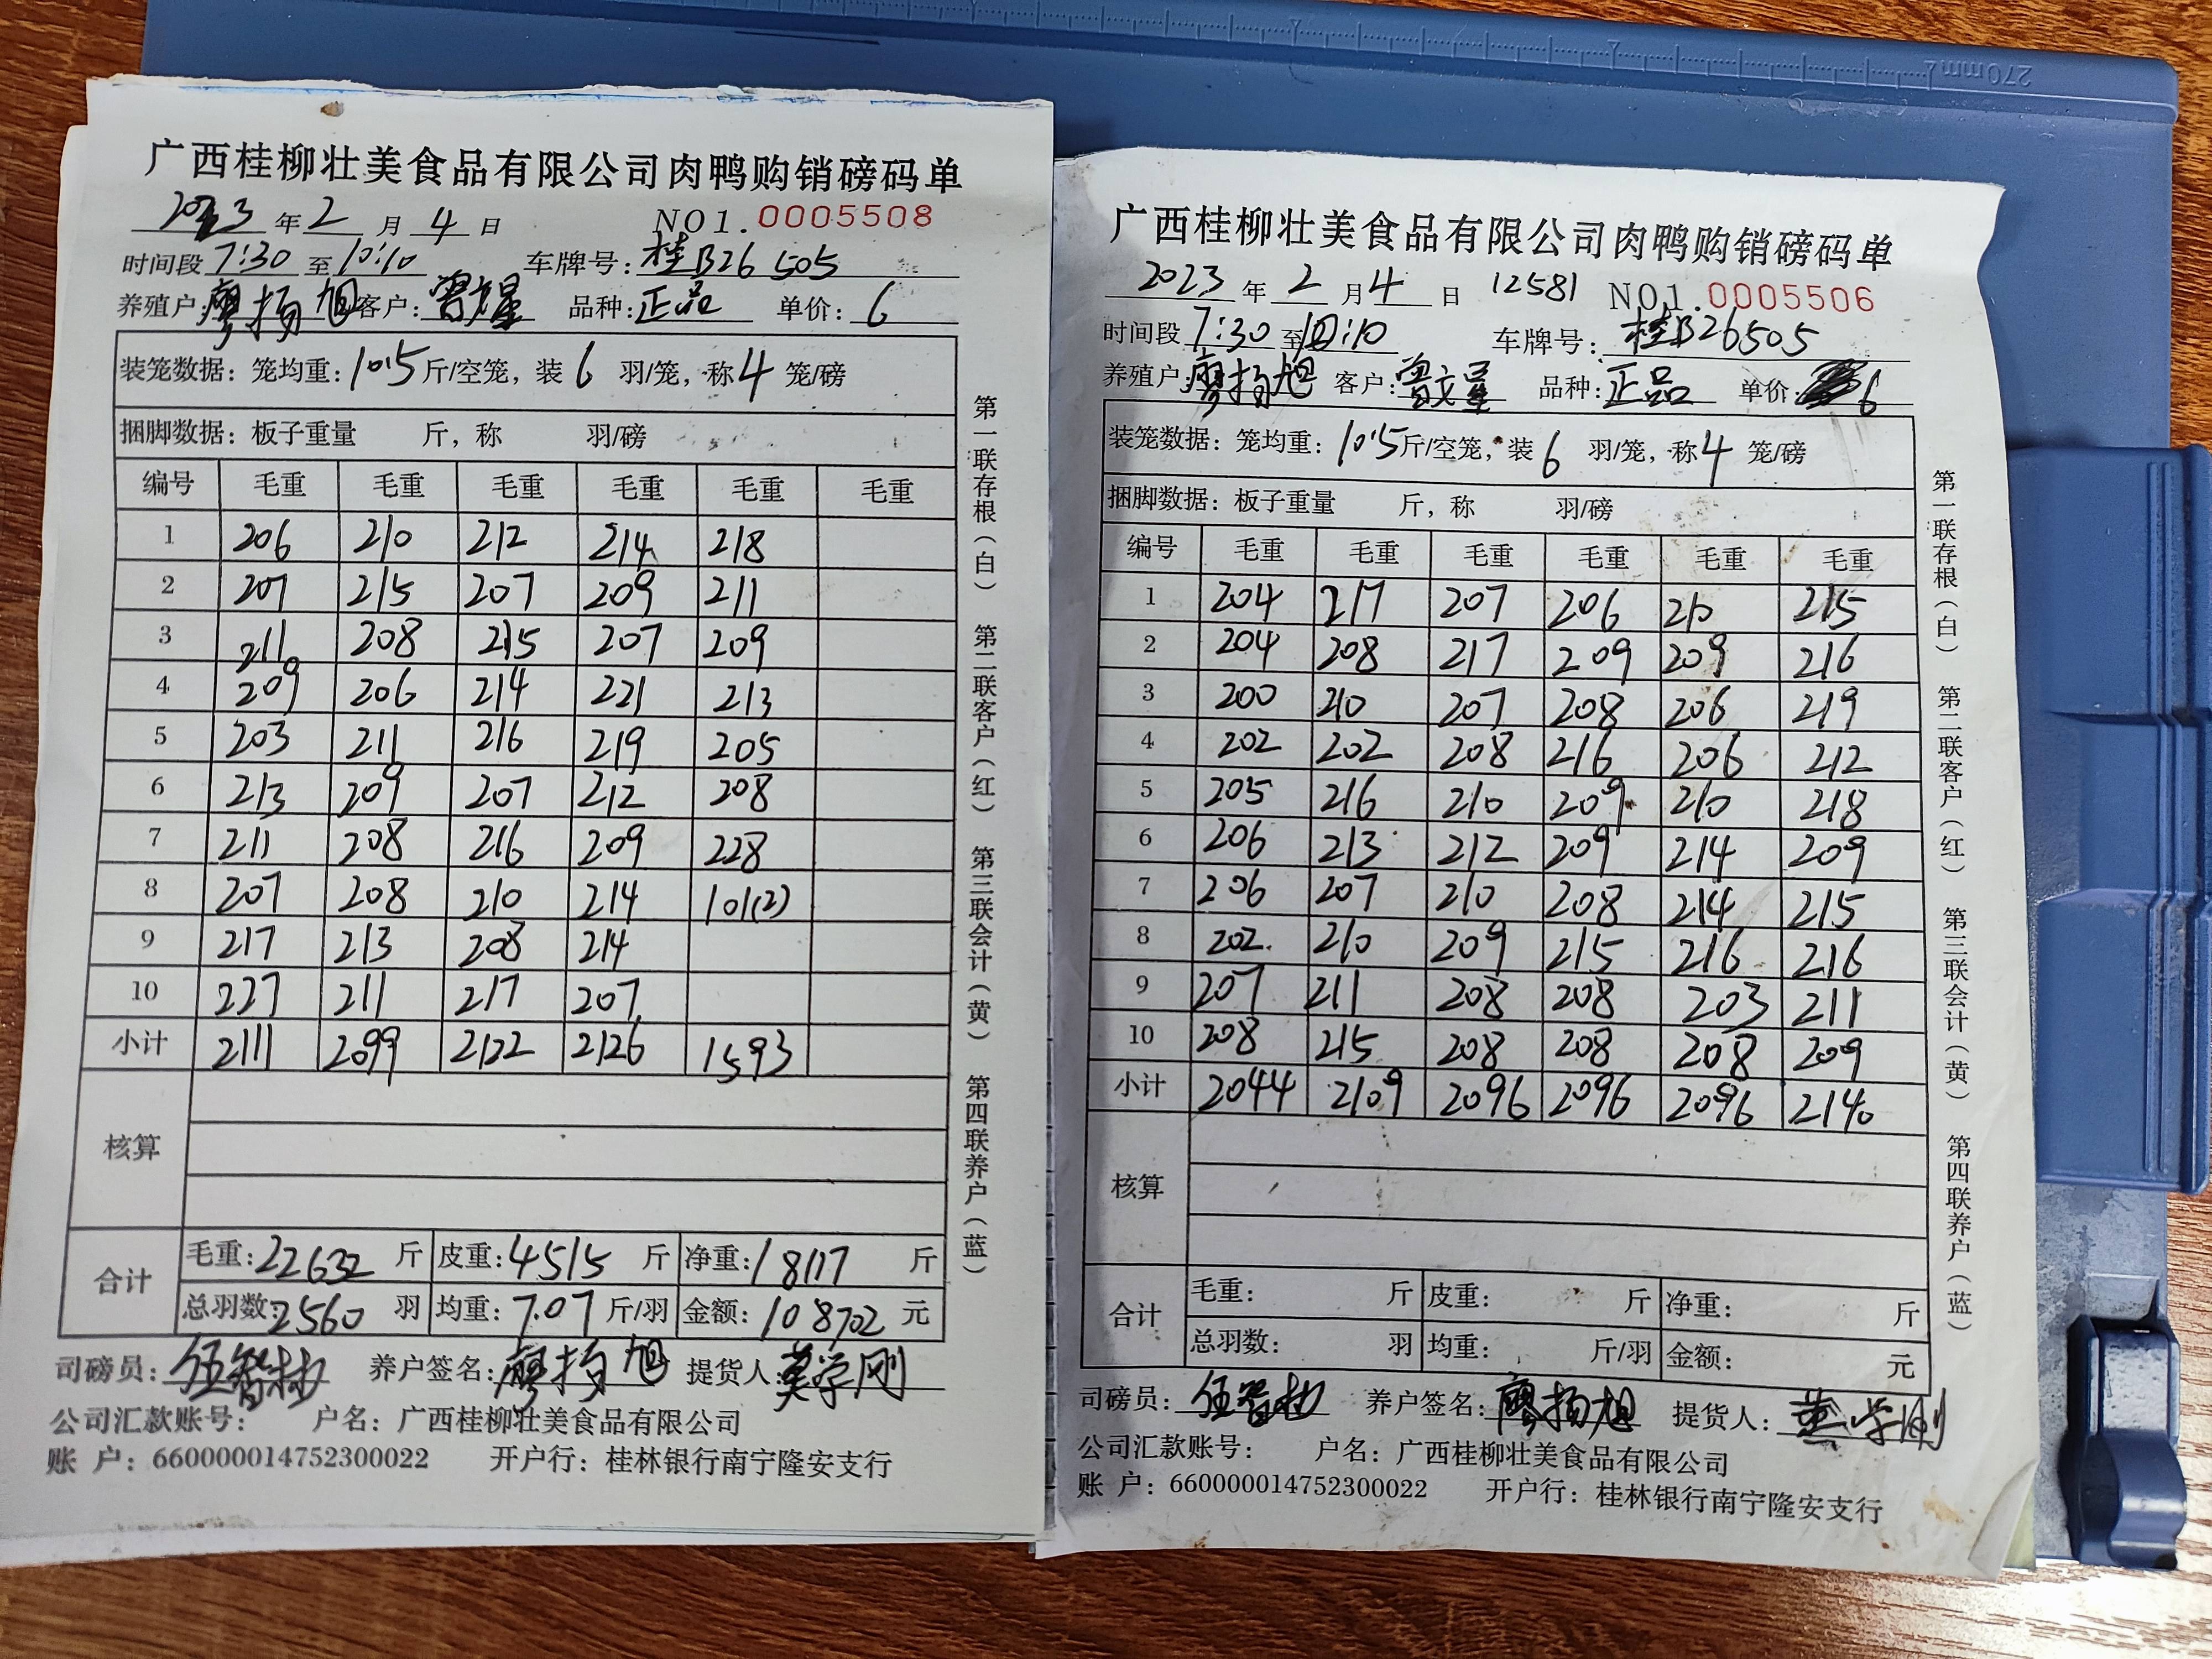 广西桂柳壮美食品有限公司肉鸭购销磅码单
2023 年 2 月 4 日 NO1.0005508
时间段 7:30 至 10:10 车牌号: 桂B26505
养殖户: 廖扬旭 客户: 品种: 正品 单价: 6
装笼数据: 笼均重: 10.5 斤/空笼, 装 6 羽/笼, 称 4 笼/磅
捆脚数据: 板子重量 斤, 称 羽/磅
编号 毛重 毛重 毛重 毛重 毛重 毛重
1 206 210 212 214 218
2 207 215 207 209 211
3 211 208 215 207 209
4 209 206 214 221 213
5 203 211 216 219 205
6 213 209 207 212 208
7 211 208 216 209 228
8 207 208 210 214 101(2)
9 217 213 208 214
10 227 211 217 207
小计 2111 2099 2122 2126 1593
核算
合计
毛重: 22632 斤 皮重: 4515 斤 净重: 18117 斤
总羽数: 2560 羽 均重: 7.07 斤/羽 金额: 108702 元
司磅员: 养户签名: 廖扬旭 提货人: 莫学刚
公司汇款账号: 户名: 广西桂柳壮美食品有限公司
账 户: 660000014752300022 开户行: 桂林银行南宁隆安支行
第一联存根(白) 第二联客户(红) 第三联会计(黄) 第四联养户(蓝)
广西桂柳壮美食品有限公司肉鸭购销磅码单
2023 年 2 月 4 日 12581 NO1.0005506
时间段 7:30 至 10:10 车牌号: 桂B26505
养殖户: 廖扬旭 客户: 品种: 正品 单价 6
装笼数据: 笼均重: 10.5 斤/空笼, 装 6 羽/笼, 称 4 笼/磅
捆脚数据: 板子重量 斤, 称 羽/磅
编号 毛重 毛重 毛重 毛重 毛重 毛重
1 204 217 207 206 210 215
2 204 208 217 209 209 216
3 200 210 207 208 206 219
4 202 202 208 216 206 212
5 205 216 210 209 210 218
6 206 213 212 209 214 209
7 206 207 210 208 214 215
8 202 210 209 215 216 216
9 207 211 208 208 203 211
10 208 215 208 208 208 209
小计 2044 2109 2096 2096 2096 2140
核算
合计
毛重: 斤 皮重: 斤 净重: 斤
总羽数: 羽 均重: 斤/羽 金额: 元
司磅员: 养户签名: 廖扬旭 提货人: 学刚
公司汇款账号: 户名: 广西桂柳壮美食品有限公司
账 户: 660000014752300022 开户行: 桂林银行南宁隆安支行
第一联存根(白) 第二联客户(红) 第三联会计(黄) 第四联养户(蓝)
270mm